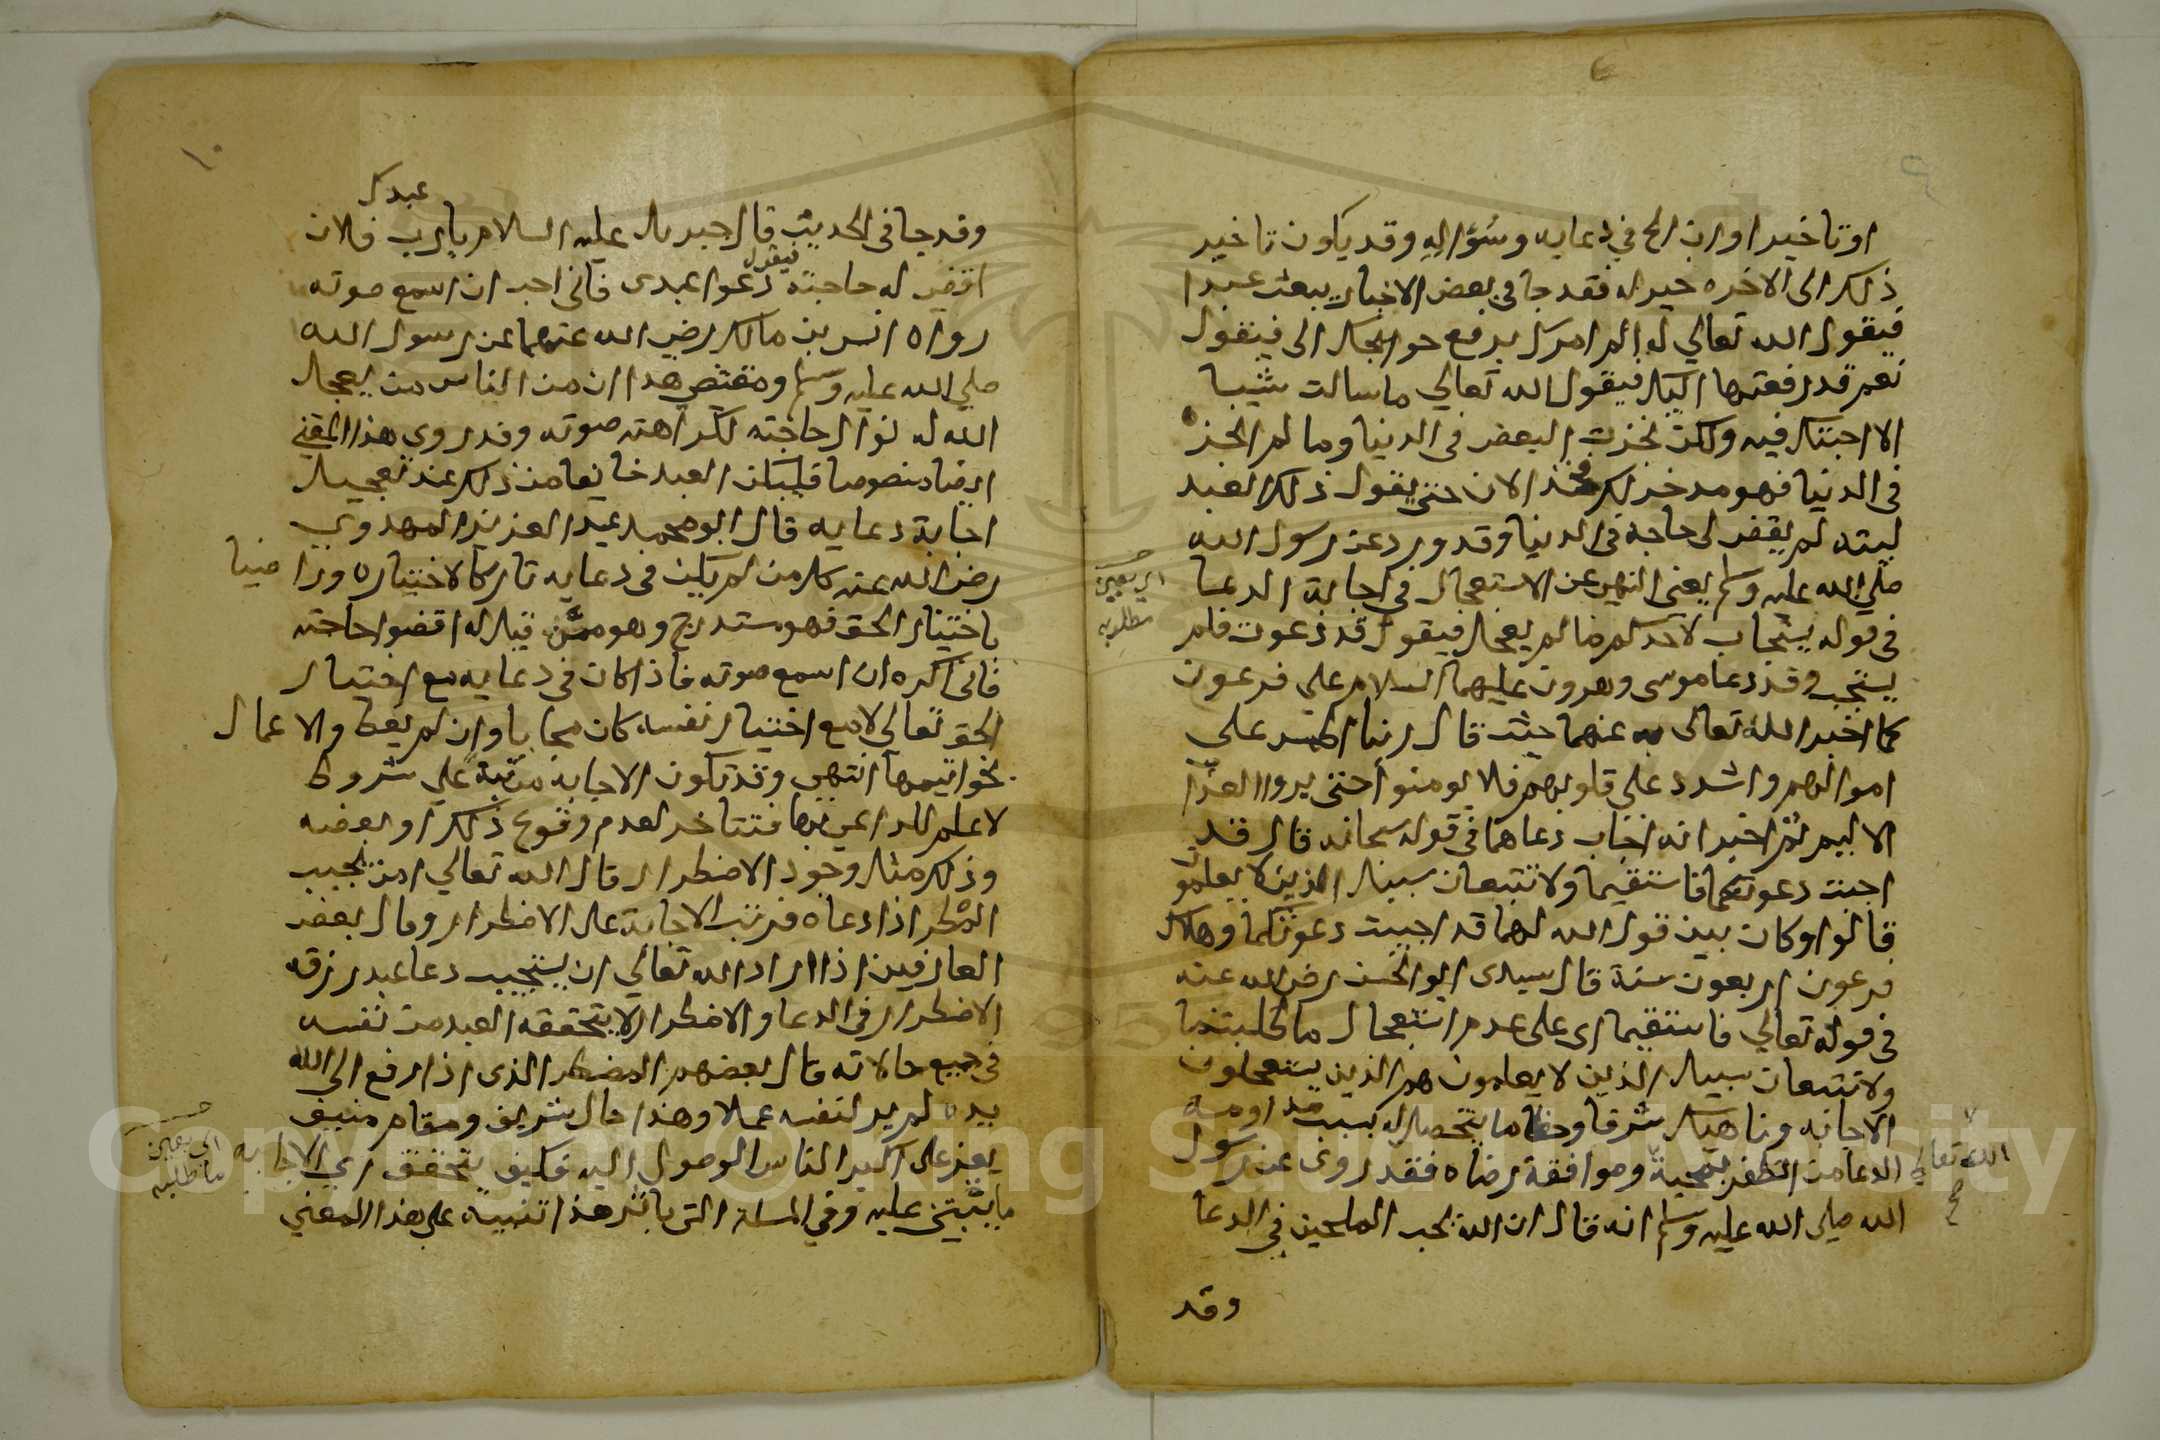 او تاخيرا وان الح في دعايه وسؤاله وقد يكون تاخير
ذلك الى الاخره خير له فقد جا في بعض الاخبار يبعث عبدا
فيقول الله تعالي له الم امرك برفع حوايجك الى فيقول
نعم قد رفعتها اليك فيقول الله تعالي ما سالت شيئا
الا اجبتك فيه ولكن نجزت البعض في الدنيا وما لم انجزه
في الدنيا فهو مدخر لك فخذ الان حتى يقول ذلك العبد
ليته لم يقض لى حاجة في الدنيا وقد ورد عن رسول الله
صلي الله عليه وسلم يعني النهي عن الاستعجال في اجابة الدعا
في قوله يستجاب لاحدكم ما لم يعجل فيقول قد دعوت فلم
يستجب وقد دعا موسى وهرون عليهما السلام علي فرعون
كما اخبر الله تعالى به عنهما حيث قال ربنا اطمس علي
اموالهم واشدد على قلوبهم فلا يومنوا حتى يروا العذاب
الاليم ثم اخبر انه اجاب دعاهما في قوله سبحانه قال قد
اجيبت دعوتكما فاستقيما ولا تتبعان سبيل الذين لا يعلمون
قالوا وكان بين قول الله لهما قد اجيبت دعوتكما وهلاك
فرعون اربعون سنة قال سيدى ابو الحسن رضى الله عنه
في قوله تعالي فاستقيما اى على عدم استعجال ما طلبتما
ولا تتبعان سبيل الذين لا يعلمون هم الذين يستعجلون
الاجابه وناهيك شرفا وحظا ما يتحصل له بسبب مداومة
الدعا من الظفر بمحبة الله تعالي وموافقة رضاه فقد روى عن رسول
الله صلى الله عليه وسلم انه قال ان الله يحب الملحين في الدعا
وقد
عبدك
وقد جا في الحديث قال جبريل عليه السلام يارب فلان
اقض له حاجته فيقول دعوا عبدى فانى احب ان اسمع صوته
رواه انس بن مالك رضي الله عنهما عن رسول الله
صلي الله عليه وسلم ومقتضي هذا ان من الناس من يعجل
الله له نوال حاجته لكراهة صوته وقد روي هذا المعني
ايضا منصوصا فليكن العبد خايفا من ذلك عند تعجيل
اجابة دعايه قال ابو محمد عبد العزيز المهدوي
رضى الله عنه كل من لم يكن في دعايه تاركا لاختياره وراضيا
باختيار الحق فهو مستدرج وهو ممن قيل له اقضوا حاجته
فانى اكره ان اسمع صوته فاذا كان في دعايه مع اختيار
الحق تعالي لا مع اختيار نفسه كان مجابا وان لم يعط والاعمال
بخواتيمها انتهي وقد تكون الاجابة مرتبة علي شروط
لا علم للداعي بها فتتاخر لعدم وقوع ذلك او بعضه
وذلك مثل وجود الاضطرار قال الله تعالي امن يجيب
المضطر اذا دعاه فرتب الاجابة على الاضطرار وقال بعض
العارفين اذا اراد الله تعالي ان يستجيب دعا عبد رزقه
الاضطرار في الدعا والاضطرار لا يتحققه العبد من نفسه
في جميع حالاته قال بعضهم المضطر الذى اذا رفع الى الله
يده لم ير لنفسه عملا وهذا حال شريف ومقام منيف
يعز على اكثر الناس الوصول اليه فكيف يتحقق اى الاجابه
ما ينبني عليه وفي المسلة التى باثر هذا تنبيه على هذا المعني